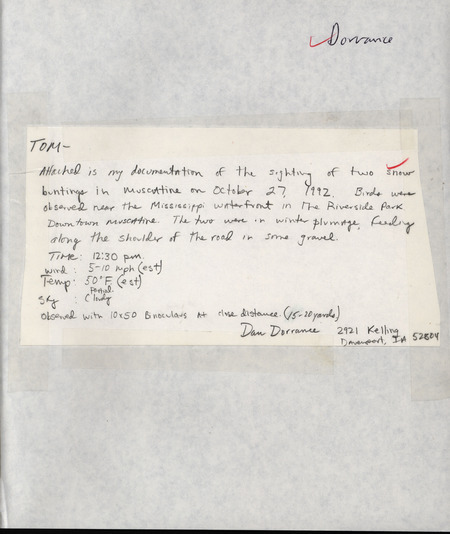 Dorrance
TOM-
Attached is my documentation of the sighting of two snow
buntings in Muscatine on October 27, 1992. Birds were
observed near the Mississippi waterfront in The Riverside Park
Downtown Muscatine. The two were in winter plumage, feeding
along the shoulder of the road in some gravel.
Time: 12:30 pm.
wind: 5-10 mph (est)
Temp: 50°F (est)
Partial
Sky: Cloudy
Observed with 10x50 Binoculars At close distance. (15-20 yards)
Dan Dorrance 2921 Kelling
Davenport, IA 52804